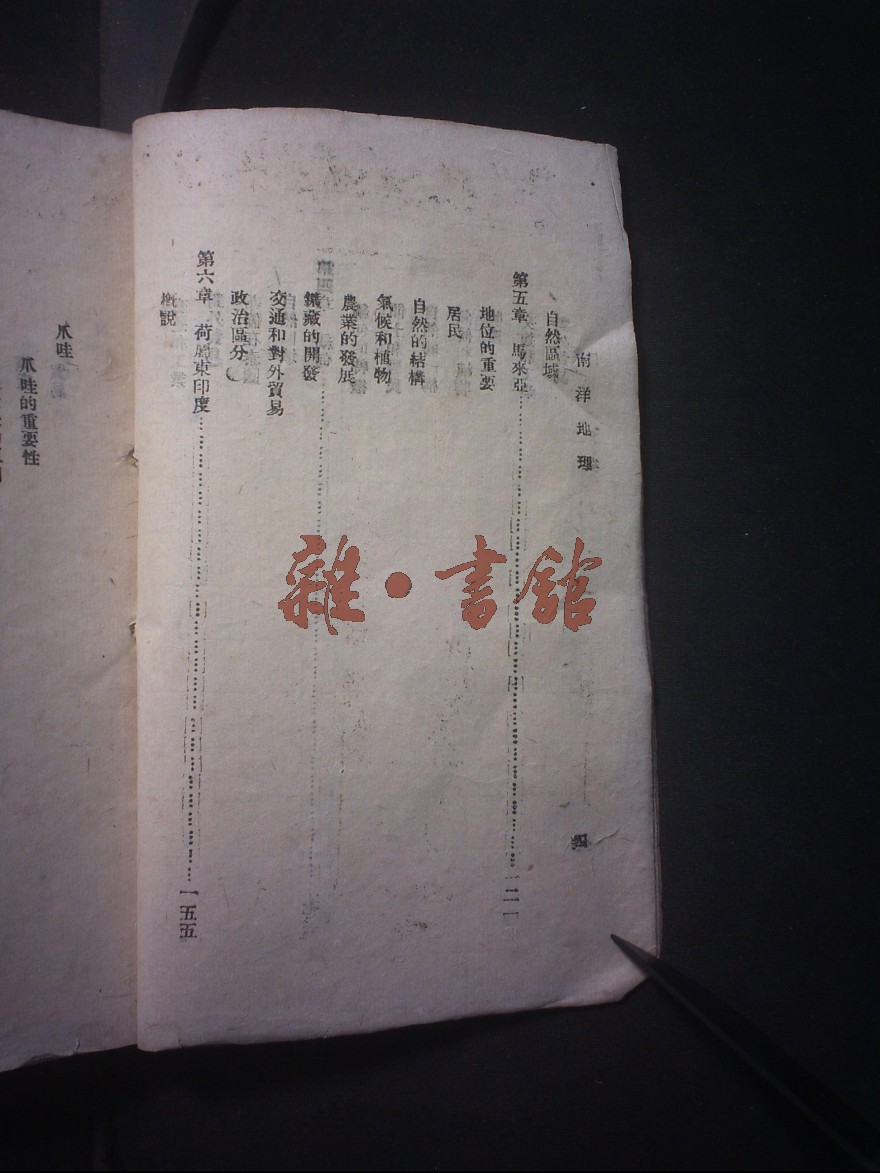 南洋地理
四
自然區域
第五章 馬來亞……一一一
地位的重要
居民
自然的結構
氣候和植物
農業的發展
鑛藏的開發
交通和對外貿易
政治區分
第六章 荷屬東印度……一五五
概説
爪哇
爪哇的重要性
雜·書館